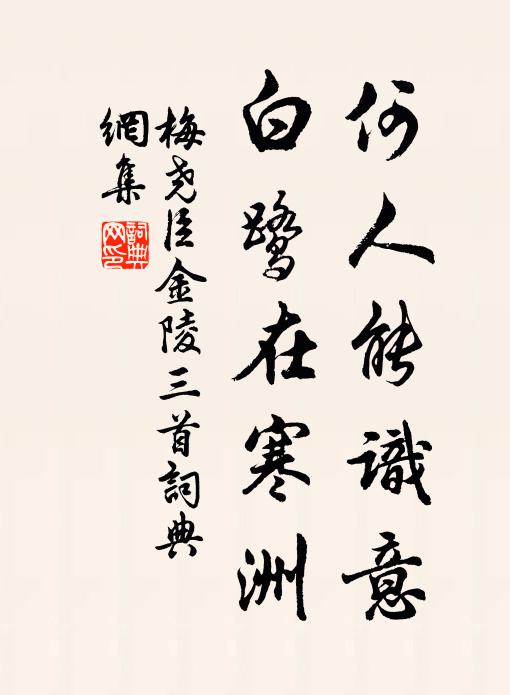 何人能識意
白鹭在寒洲
梅尧臣金陵三首詞典
網集
詞典
网印